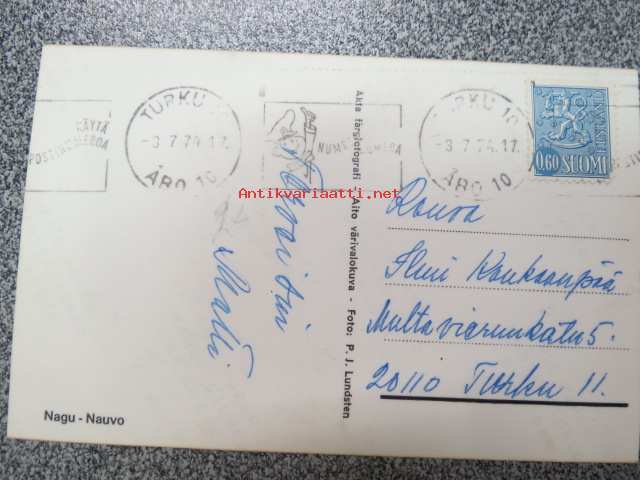 TURKU 10
-3.7.74.17
ÅBO 10
KÄYTÄ
POSTINUMEROA
TURKU 10
-3.7.74.17.
ÅBO 10
0,60 SUOMI
Antikvariaatti.net
Äkta färgfotografi - Aito värivalokuva - Foto: P. J. Lundsten
Matti
Rouva
Elmi Kankaanpää
Multavierunkatu 5.
20110 Turku 11.
Nagu - Nauvo